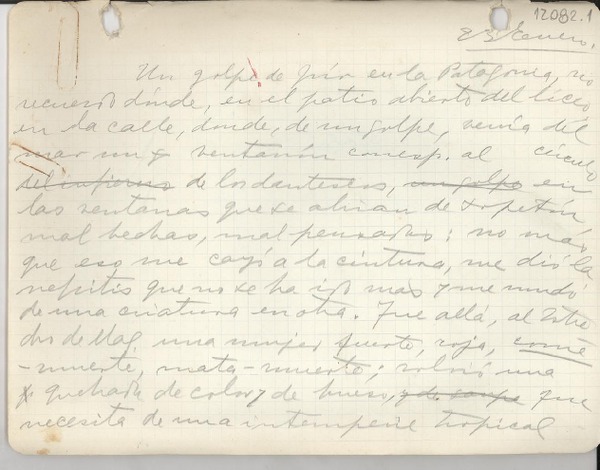 12082.1
23 Enero.
Un golpe de frío en la Patagonia, no
recuerdo dónde, en el patio abierto del liceo
en la calle, donde, de un golpe, venía del
mar un ventarrón al círculo
del infierno de los dantescos, un golpe en
las ventanas que se abrían de sopetón
mal hechas, mal pensadas; no más
que eso me cayó a la cintura, me dió la
nefritis que no se ha ido más y me mudó
de una criatura en otra. Fue allá, al Estre
cho de Mag. una mujer fuerte, roja, come
-muerte, mata-muerto; volvió una
quebrada de color y de hueso, que
necesita de una intemperie tropical